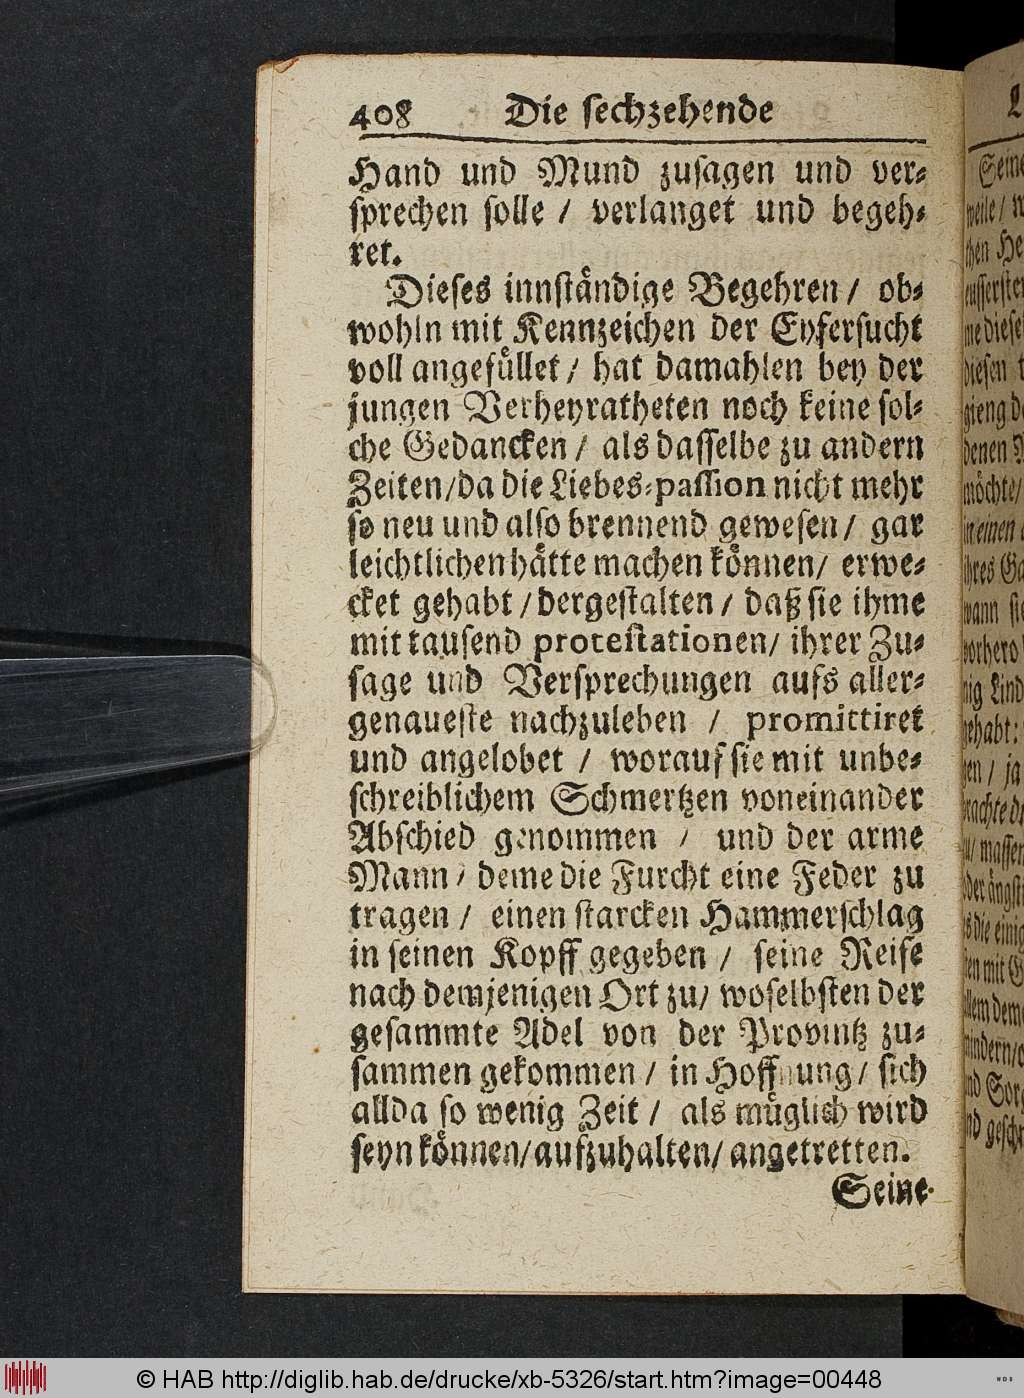 408 Die sechzehende
Hand und Mund zusagen und ver⸗
sprechen solle / verlanget und begeh⸗
ret.
Dieses innståndige Begehren / ob⸗
wohln mit Kennzeichen der Eyfersucht
voll angefüllet / hat damahlen bey der
jungen Verheyratheten noch keine sol⸗
che Gedancken / als dasselbe zu andern
Zeiten / da die Liebes⸗passion nicht mehr
so neu und also brennend gewesen / gar
leichtlichen håtte machen können / erwe⸗
cket gehabt / dergestalten / daß sie ihme
mit tausend protestationen / ihrer Zu⸗
sage und Versprechungen aufs aller⸗
genaueste nachzuleben / promittiret
und angelobet / worauf sie mit unbe⸗
schreiblichem Schmertzen voneinander
Abschied genommen / und der arme
Mann / deme die Furcht eine Feder zu
tragen / einen starcken Hammerschlag
in seinen Kopff gegeben / seine Reise
nach demjenigen Ort zu / woselbsten der
gesammte Adel von der Provintz zu⸗
sammen gekommen / in Hoffnung / sich
allda so wenig Zeit / als müglich wird
seyn können / aufzuhalten / angetretten.
Seine
© HAB http://diglib.hab.de/drucke/xb-5326/start.htm?image=00448